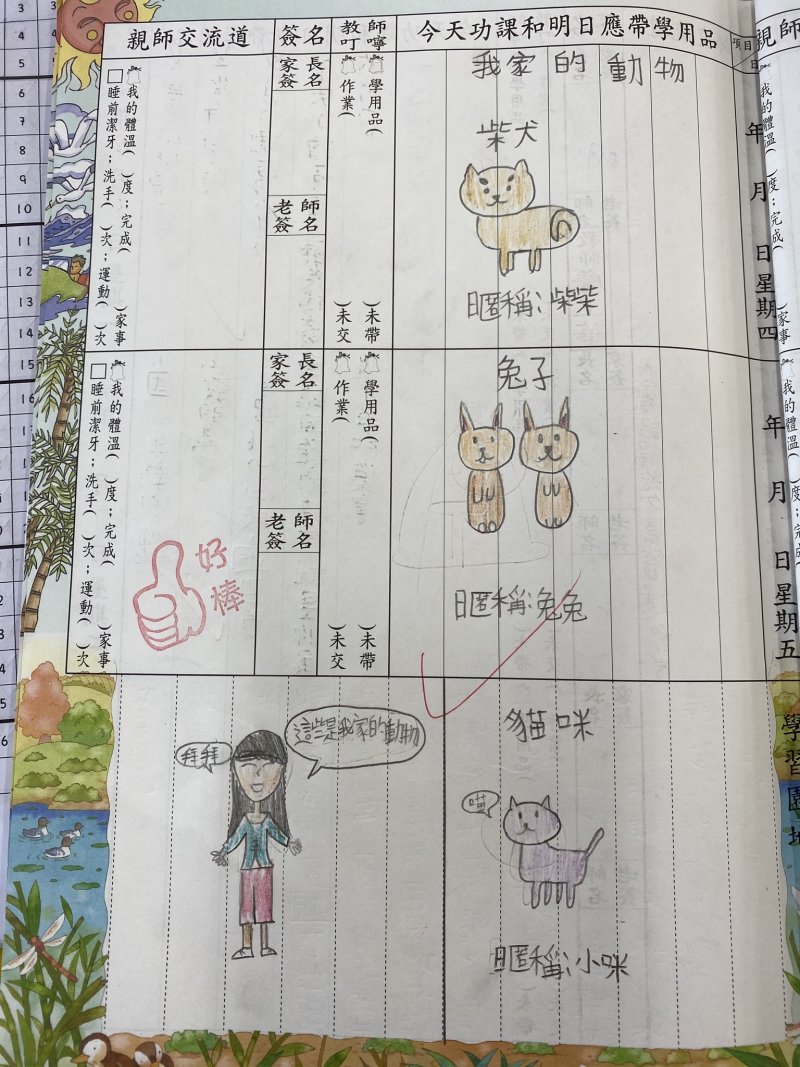 親師交流道
簽名
教師叮嚀
今天功課和明日應帶學用品
項目
日
親師
家長簽名
老師簽名
學用品(　)未帶
作業(　)未交
我的體溫(　)度；完成(　)家事
睡前潔牙；洗手(　)次；運動(　)次
年　月　日星期四
我的體溫(　)度；完成(　)家事
我家的動物
柴犬
日匿稱：柴柴
家長簽名
老師簽名
學用品(　)未帶
作業(　)未交
我的體溫(　)度；完成(　)家事
睡前潔牙；洗手(　)次；運動(　)次
年　月　日星期五
我的體溫(　)度；完成
兔子
日匿稱：兔兔
好棒
學習園地
拜拜
這些是我家的動物
貓咪
喵
日匿稱：小咪
3
4
5
6
7
8
9
10
11
12
13
14
15